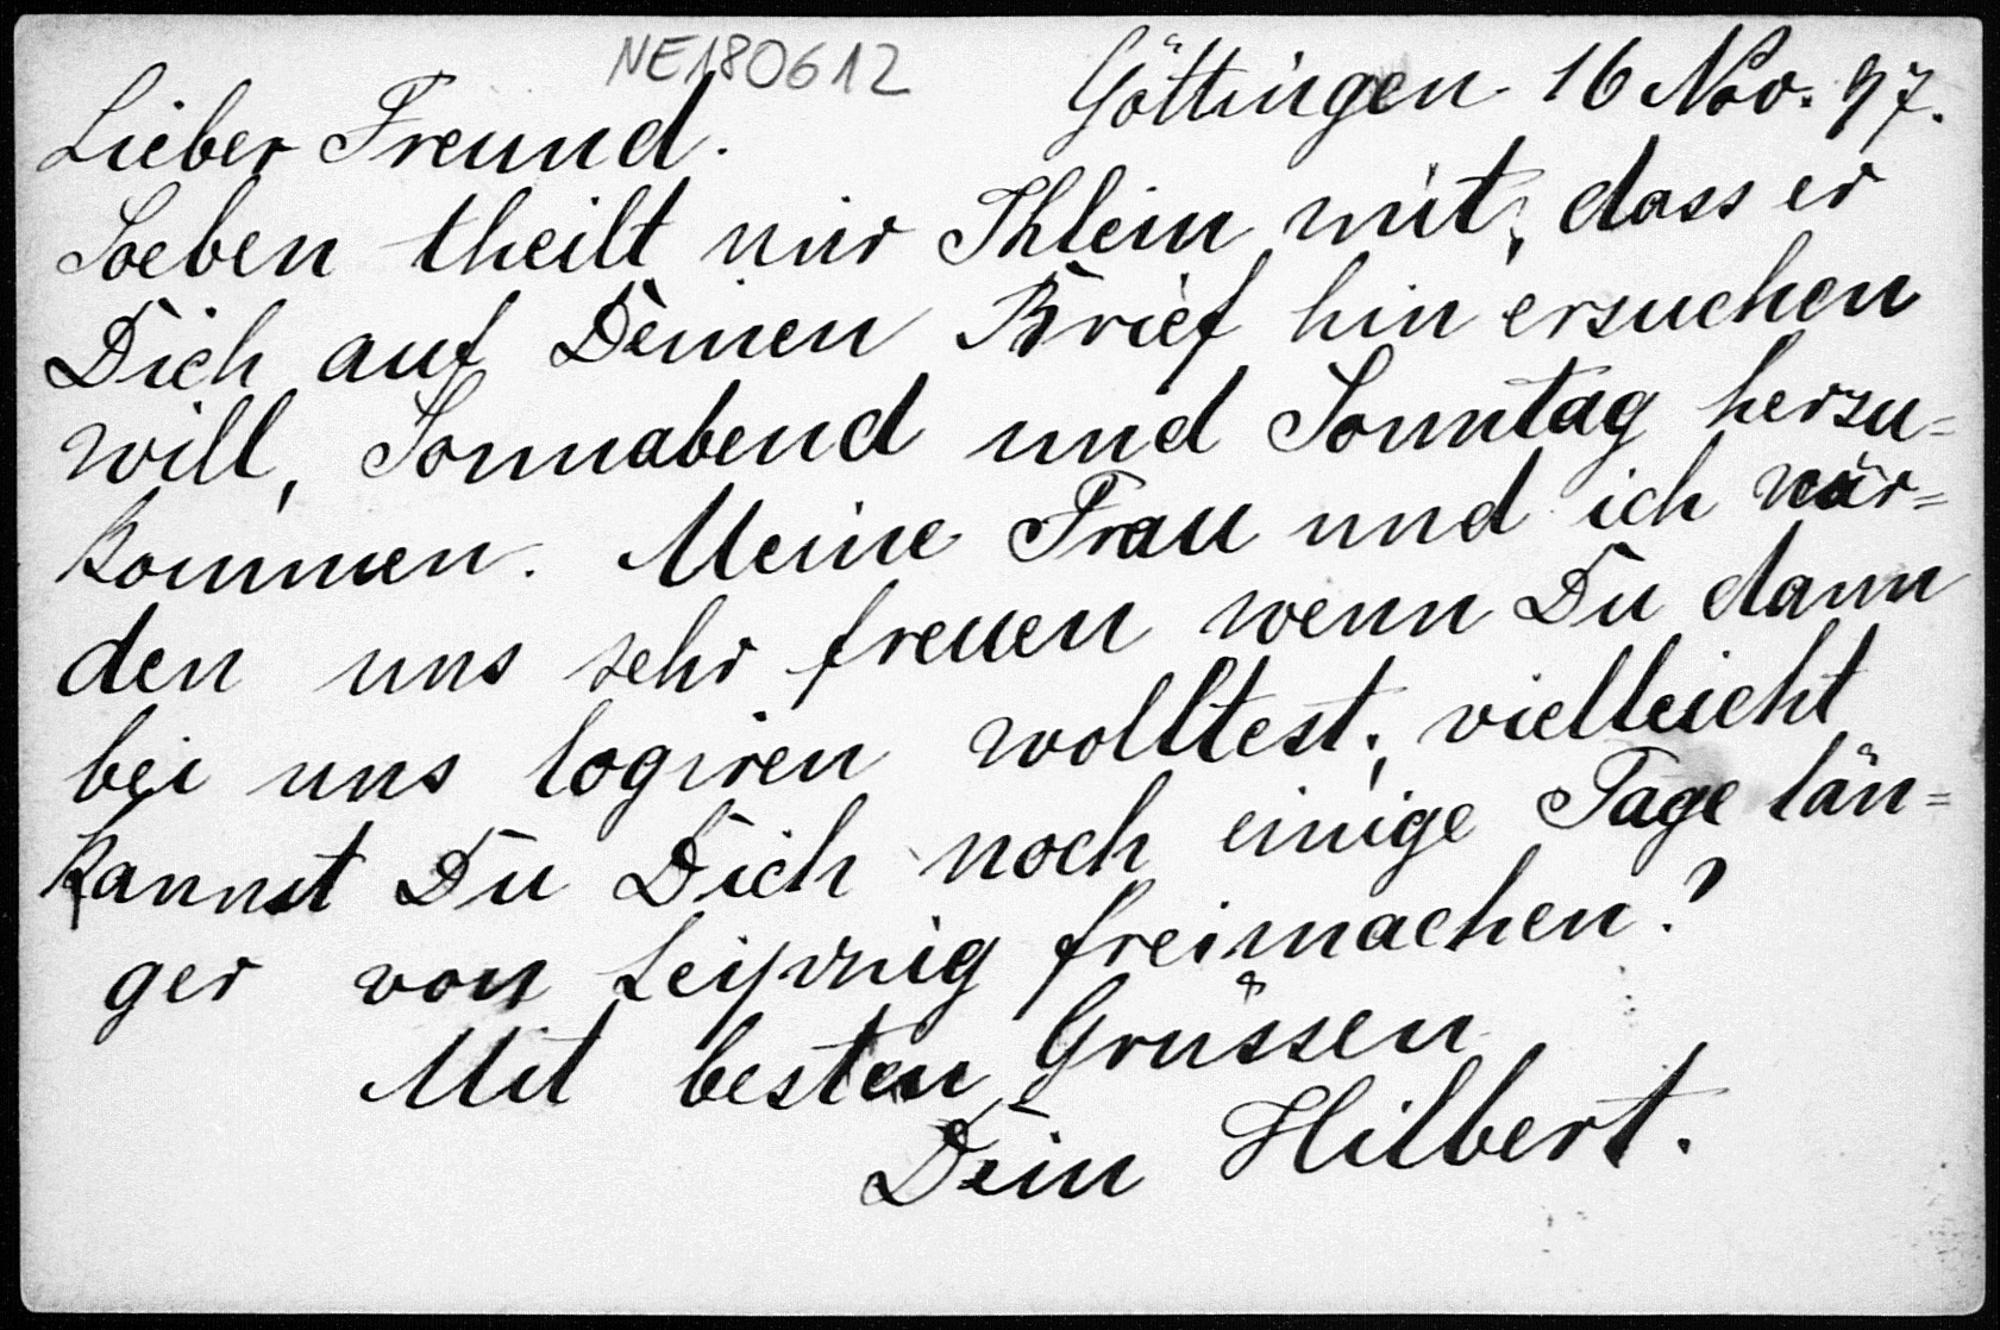 NE180612
Göttingen 16 Nov. 97.
Lieber Freund.
Soeben theilt mir Klein mit, dass er
Dich auf Deinen Brief hin ersuchen
will, Sonnabend und Sonntag herzu=
kommen. Meine Frau und ich wür=
den uns sehr freuen wenn Du dann
bei uns logiren wolltest; vielleicht
kannst Du Dich noch einige Tage län=
ger von Leipzig freimachen?
Mit besten Grüssen
Dein Hilbert.